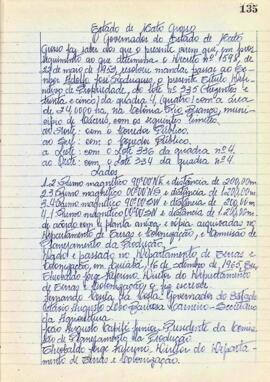 135
Estado de Mato Grosso
O Governador do Estado de Mato
Grosso faz saber aos que o presente virem que, em
ao que determina o Decreto nº 1598, de
22 de maio de 1953, resolveu mandar passar ao Se-
nhor Adolfo José o presente Título
de Propriedade, do lote nº 335 (trezentos e
trinta e cinco) da quadra 4, (quatro) com a área
de 24.0000 ha, na Colônia Rio Branco, município
de com os seguintes limites:
ao Norte: com o Corredor Público.
ao Sul: com o Corredor Público.
ao Leste: com o Lote 336 da quadra nº 4.
ao Oeste: com o Lote 334 da quadra nº 4.
Lados
1.2 Rumo magnético e distância de 200,00m
2.3 Rumo magnético e distância de 1.200,00m
3.4 Rumo magnético e distância de 200,00m
4.1 Rumo magnético e distância de 1.200,00m
de acordo com a planta anexa e cópia arquivadas no
Departamento de Terras e Colonização, e Comissão de
Planejamento da Produção.
Dado e passado no Departamento de Terras e
Colonização, em Cuiabá, 16 de dezembro de 1965, Eu,
Jorge Diretor do Departamento
de Terras e Colonização o fiz escrever.
Fernando Corrêa da Costa - Governador do Estado
Augusto - Secretário
da Agricultura
João Augusto Capilé Junior, Presidente da Comis-
são de Planejamento da Produção.
Jorge Diretor do Departa-
mento de Terras e Colonização.